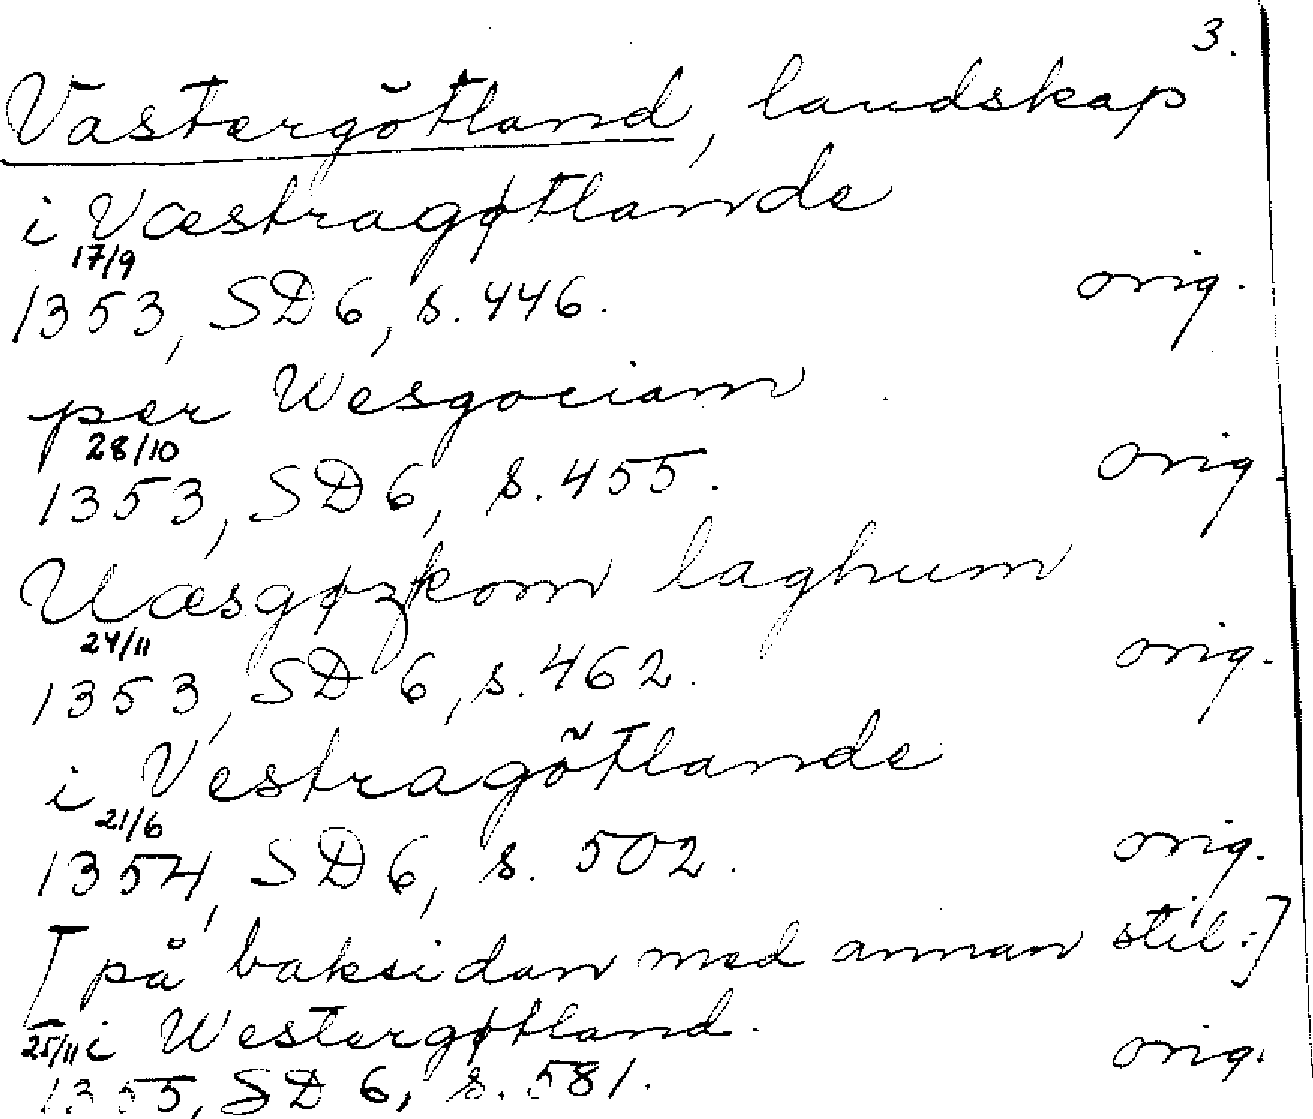 3.
Västergötland, landskap
i Væstragøtlande
17/9
1353, SD 6, s. 446. orig.
per Wesgociam
28/10
1353, SD 6, s. 455. orig.
Uæsgøzkom laghum
24/11
1353, SD 6, s. 462. orig.
i Vestragötlande
21/6
1354, SD 6, s. 502. orig.
[på baksidan med annan stil:]
25/11 i Westergøtland.
1355, SD 6, s. 581. orig.